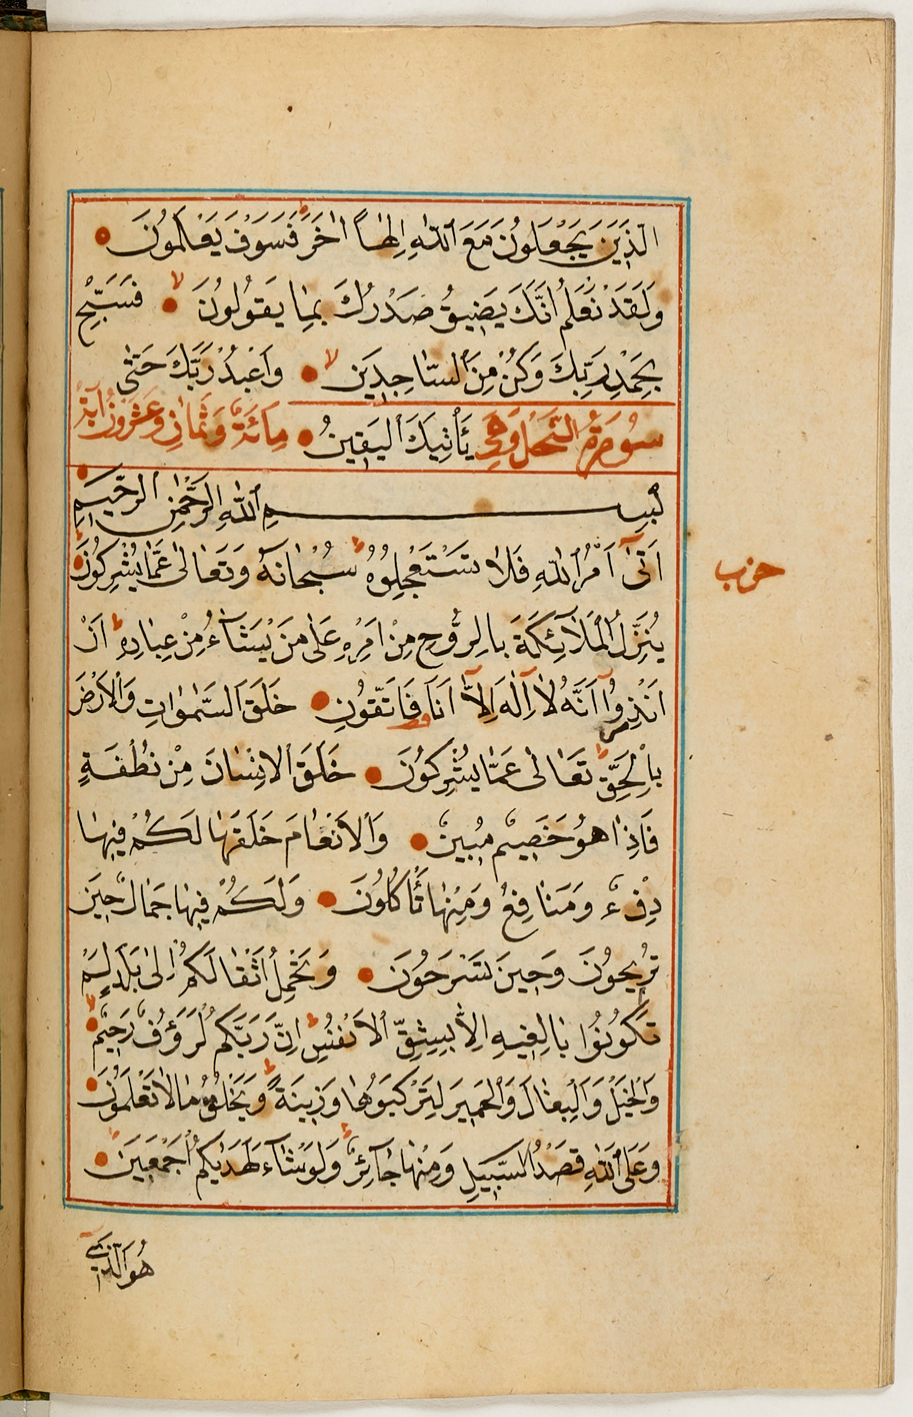 الَّذِينَ يَجْعَلُونَ مَعَ اللّٰهِ اِلٰهاً اٰخَرَ فَسَوْفَ يَعْلَمُونَ
وَلَقَدْ نَعْلَمُ اَنَّكَ يَضِيقُ صَدْرُكَ بِمَا يَقُولُونَ فَسَبِّحْ
بِحَمْدِ رَبِّكَ وَكُنْ مِنَ السَّاجِدِينَ وَاعْبُدْ رَبَّكَ حَتّٰى
سُورَةُ النَّحْلِ وَهِيَ يَأْتِيَكَ الْيَقِينُ مِائَةٌ وَثَمَانٍ وَعِشْرُونَ اٰيَةً
بِسْمِ اللّٰهِ الرَّحْمٰنِ الرَّحِيمِ
اَتٰٓى اَمْرُ اللّٰهِ فَلَا تَسْتَعْجِلُوهُ سُبْحَانَهُ وَتَعَالٰى عَمَّا يُشْرِكُونَ
حزب
يُنَزِّلُ الْمَلٰٓئِكَةَ بِالرُّوحِ مِنْ اَمْرِهِ عَلٰى مَنْ يَشَٓاءُ مِنْ عِبَادِهِ اَنْ
اَنْذِرُوٓا اَنَّهُ لَٓا اِلٰهَ اِلَّٓا اَنَا فَاتَّقُونِ خَلَقَ السَّمٰوَاتِ وَالْاَرْضَ
بِالْحَقِّ تَعَالٰى عَمَّا يُشْرِكُونَ خَلَقَ الْاِنْسَانَ مِنْ نُطْفَةٍ
فَاِذَا هُوَ خَصِيمٌ مُبِينٌ وَالْاَنْعَامَ خَلَقَهَا لَكُمْ فِيهَا
دِفْءٌ وَمَنَافِعُ وَمِنْهَا تَأْكُلُونَ وَلَكُمْ فِيهَا جَمَالٌ حِينَ
تُرِيحُونَ وَحِينَ تَسْرَحُونَ وَتَحْمِلُ اَثْقَالَكُمْ اِلٰى بَلَدٍ لَمْ
تَكُونُوا بَالِغِيهِ اِلَّا بِشِقِّ الْاَنْفُسِ اِنَّ رَبَّكُمْ لَرَؤُفٌ رَحِيمٌ
وَالْخَيْلَ وَالْبِغَالَ وَالْحَمِيرَ لِتَرْكَبُوهَا وَزِينَةً وَيَخْلُقُ مَا لَا تَعْلَمُونَ
وَعَلَى اللّٰهِ قَصْدُ السَّبِيلِ وَمِنْهَا جَٓائِرٌ وَلَوْ شَٓاءَ لَهَدٰيكُمْ اَجْمَعِينَ
هُوَ الَّذِٓي